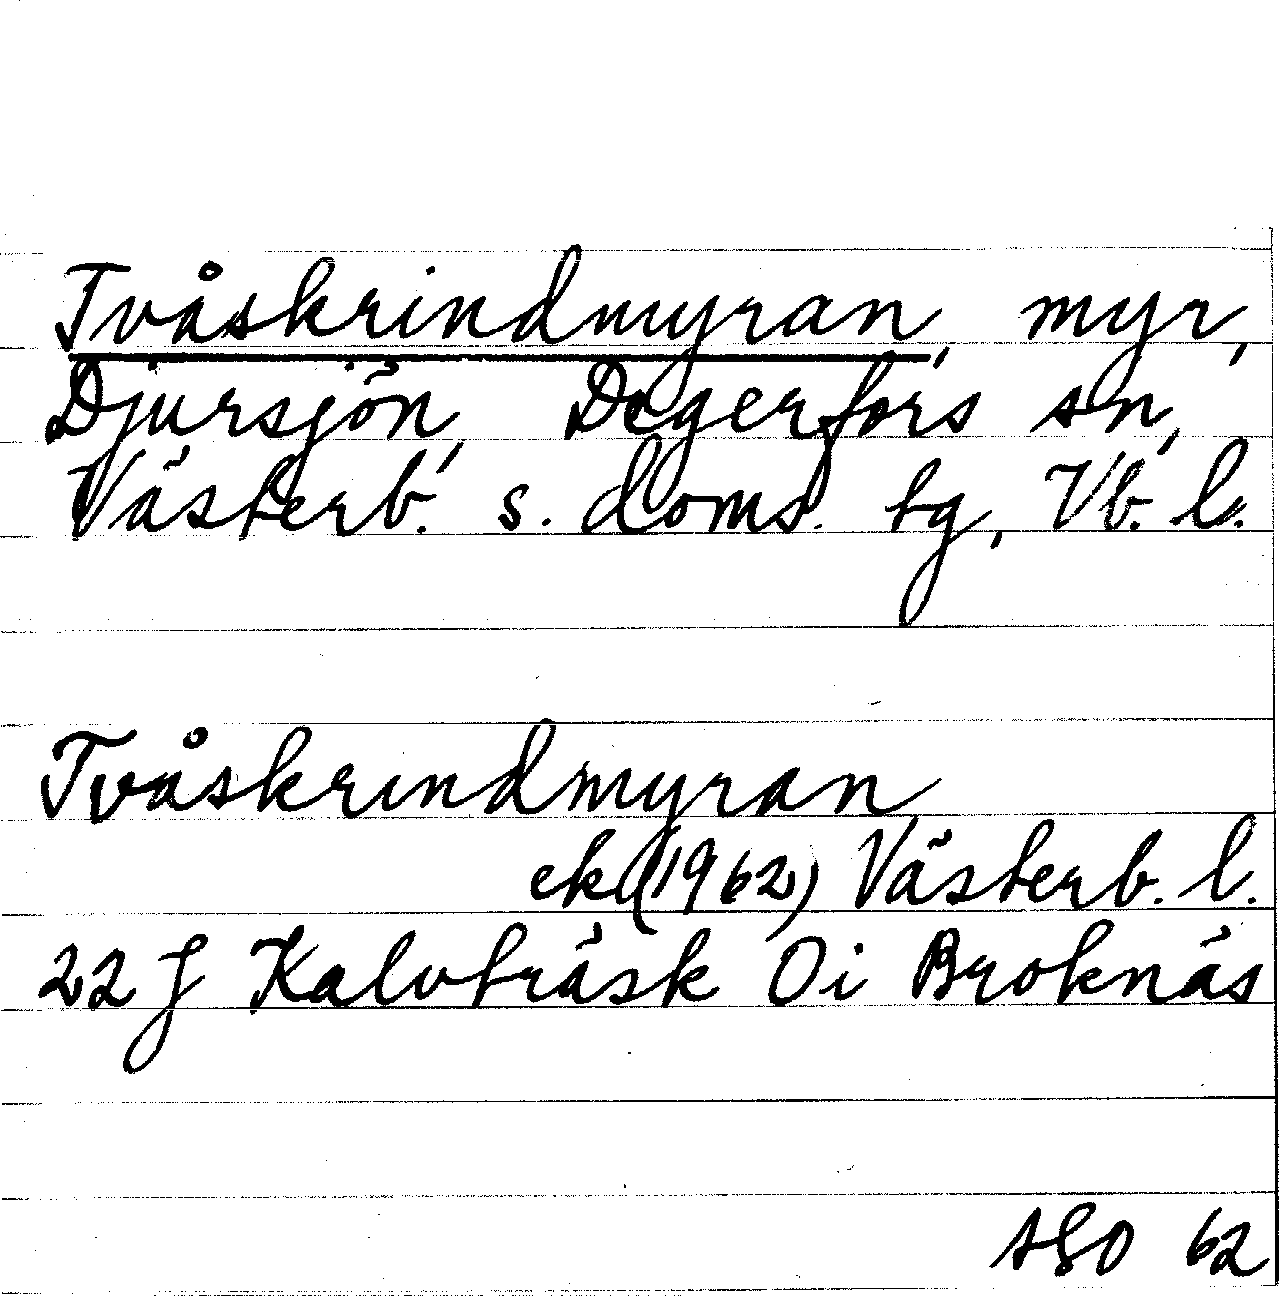 Tvåskrindmyran, myr,
Djursjön, Degerfors sn,
Västerb. s. doms. tg, Vb. l.
Tvåskrindmyran
ek (1962) Västerb. l.
22 J Kalvträsk 0i Broknäs
62